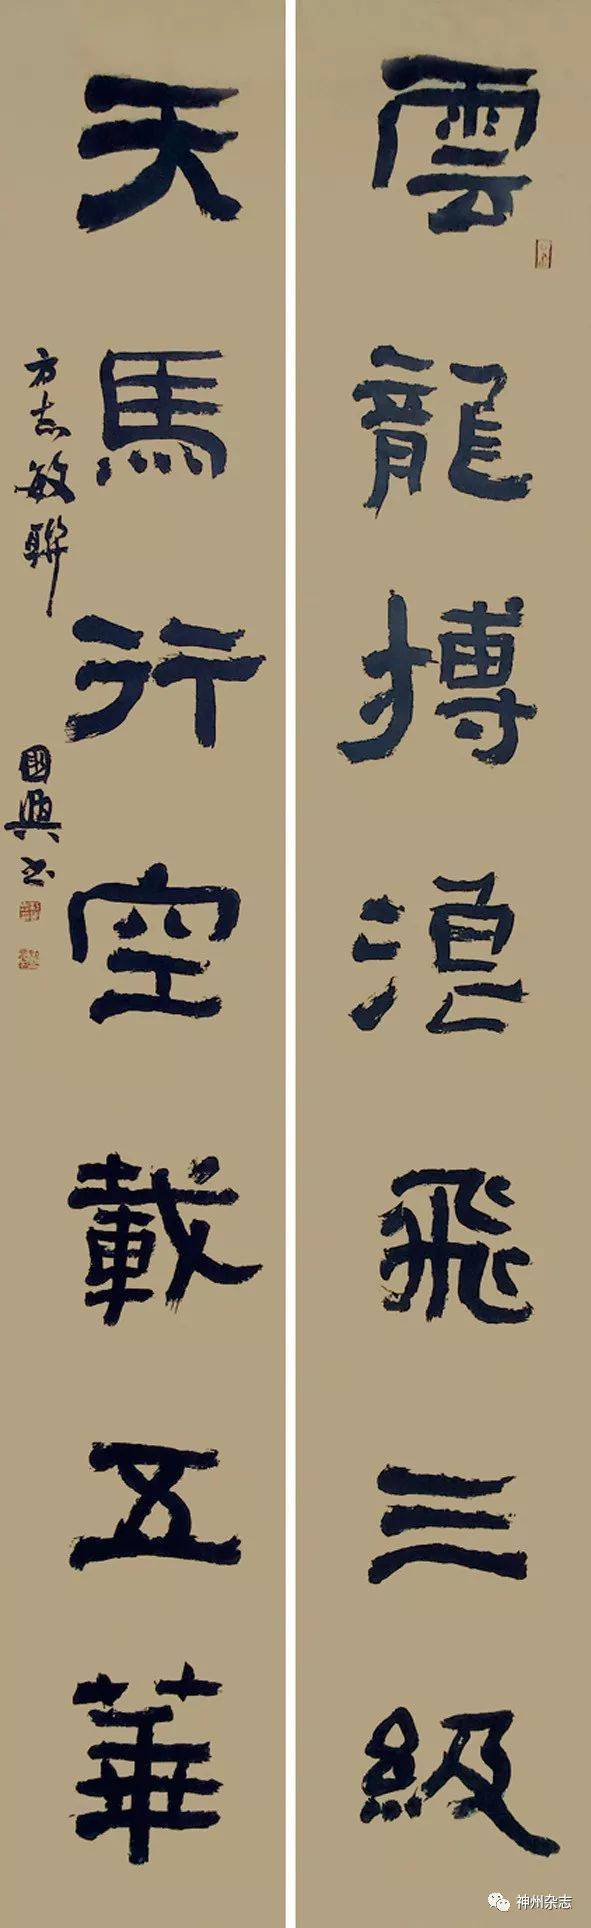 雲龍搏浪飛三級
天馬行空載五華
方志敏聯
國興书
神州杂志